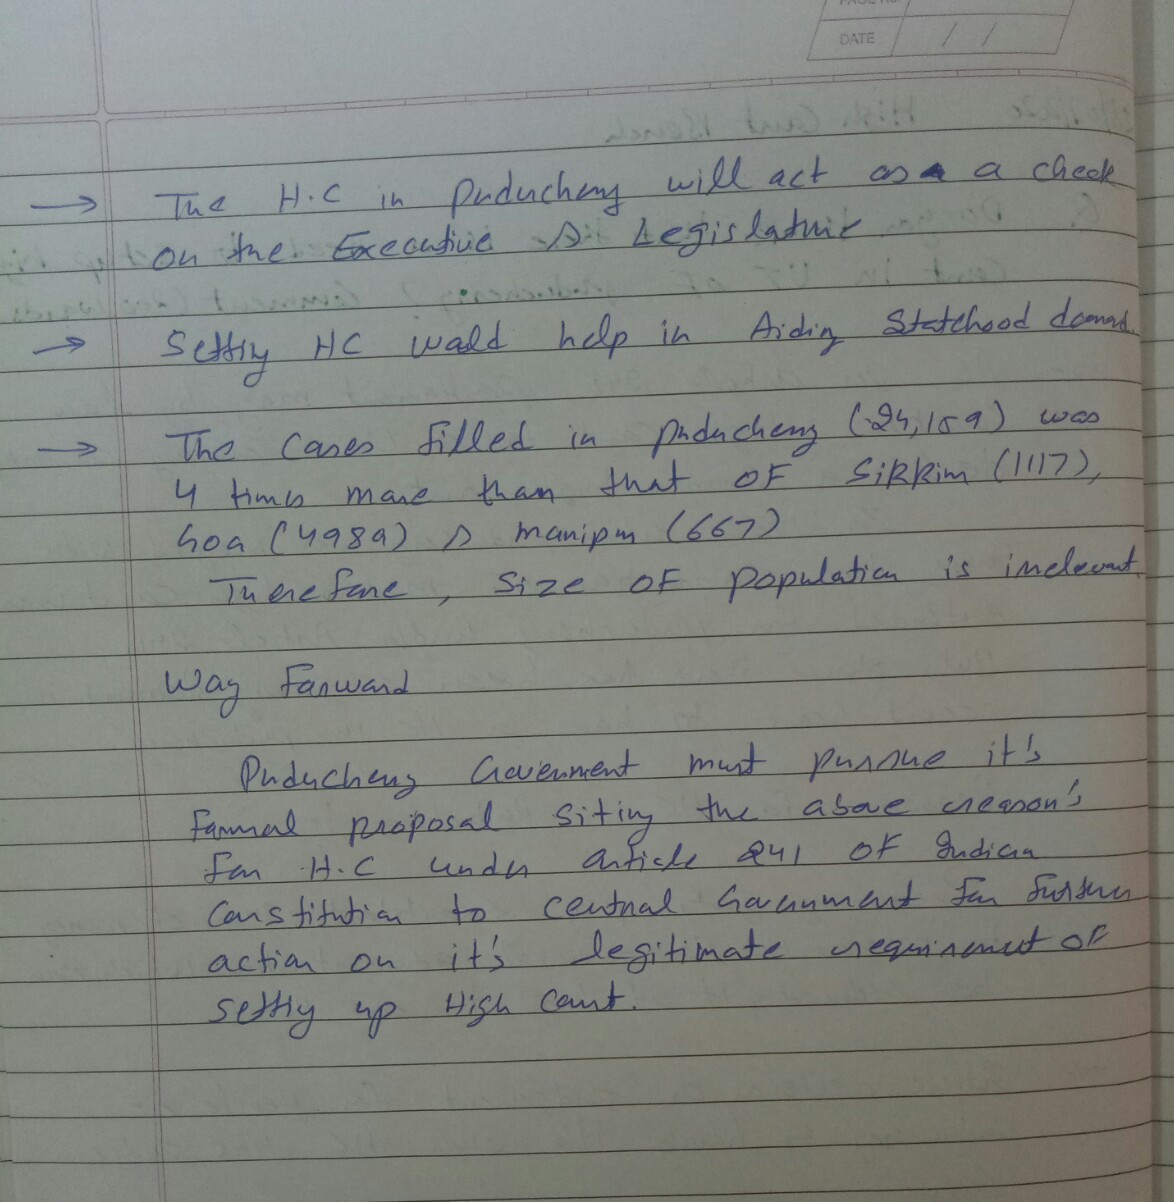 PAGE No.
DATE / /
→ The H.C in Puducherry will act as a check
on the Executive & Legislature
→ Setting HC would help in Aiding Statehood demand.
→ The cases filled in puducherry (24,159) was
4 times more than that OF Sikkim (1117),
Goa (4989) & manipur (667)
Therefore, Size OF population is irrelevant.
Way Forward
Puducherry Government must pursue it's
formal proposal siting the above reason's
for H.C under article 241 OF Indian
Constitution to central Government for further
action on it's legitimate requirement OF
setting up High Court.